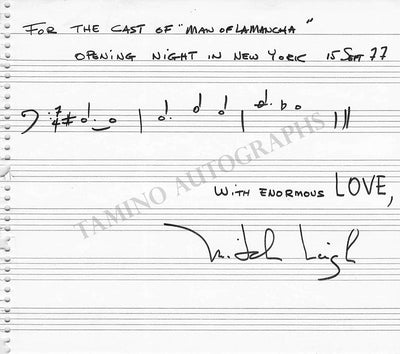 FOR THE CAST OF "MAN OF LAMANCHA"
OPENING NIGHT IN NEW YORK 15 SEPT 77
7
4
WITH ENORMOUS LOVE,
Mitch Leigh
TAMINO AUTOGRAPHS